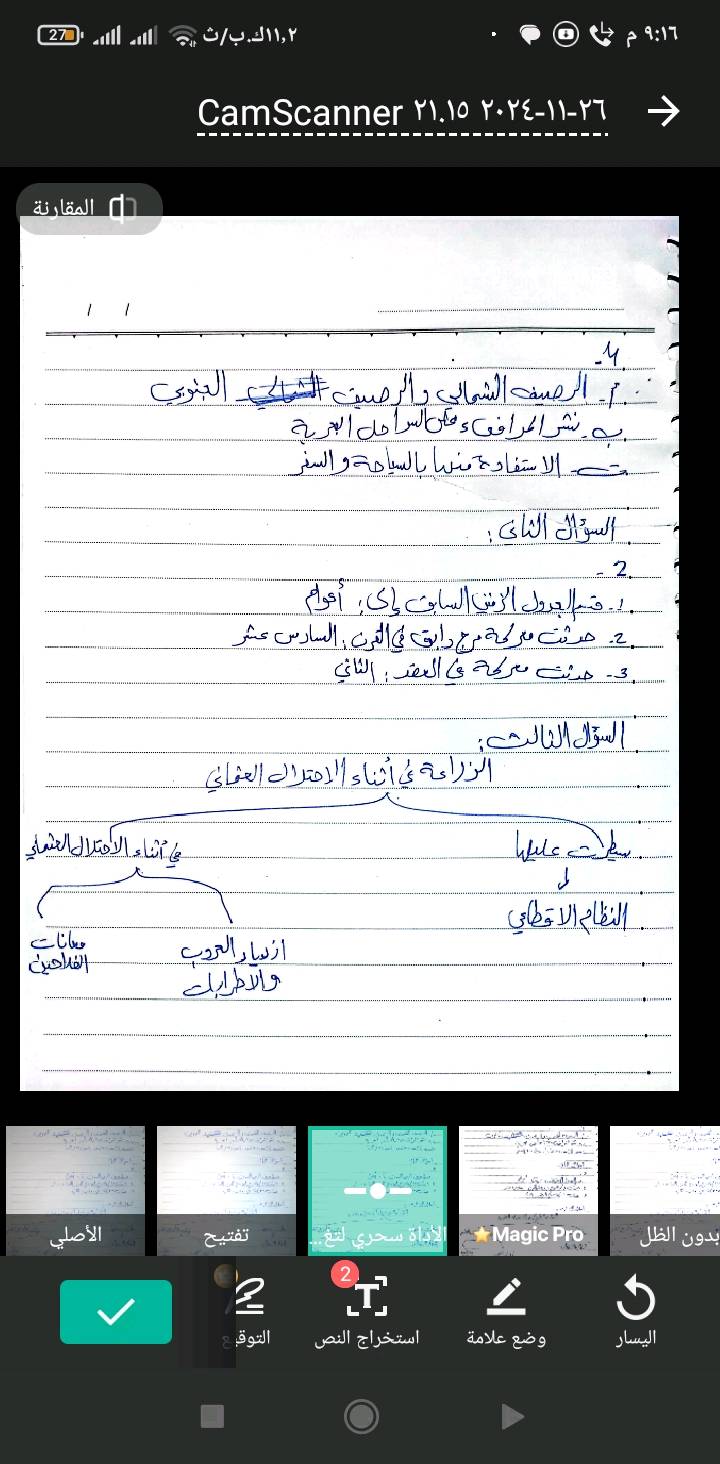 ٩:١٦ م
١١,٢ك.ب/ث
27
CamScanner ٢١.١٥ ٢٠٢٤-١١-٢٦
المقارنة
/ /
4-
أ- الرصيف الشمالي والرصيف الجنوبي
ب- نشر المرافئ على السواحل العربية
ت- الاستفادة منها بالسياحة والسفر
السؤال الثاني:
2-
1- قسم الجدول الزمني السابق إلى: أعوام
2- حدثت معركة مرج دابق في القرن: السادس عشر
3- حدثت معركة في العقد: الثاني
السؤال الثالث:
الزراعة في أثناء الاحتلال العثماني
سيطرت عليها
في أثناء الاحتلال العثماني
النظام الاقطاعي
ازدياد الحروب
والاضرابات
معانات
الفلاحين
الأصلي
تفتيح
الأداة سحري لتغ...
Magic Pro
بدون الظل
اليسار
وضع علامة
استخراج النص
2
التوقيع